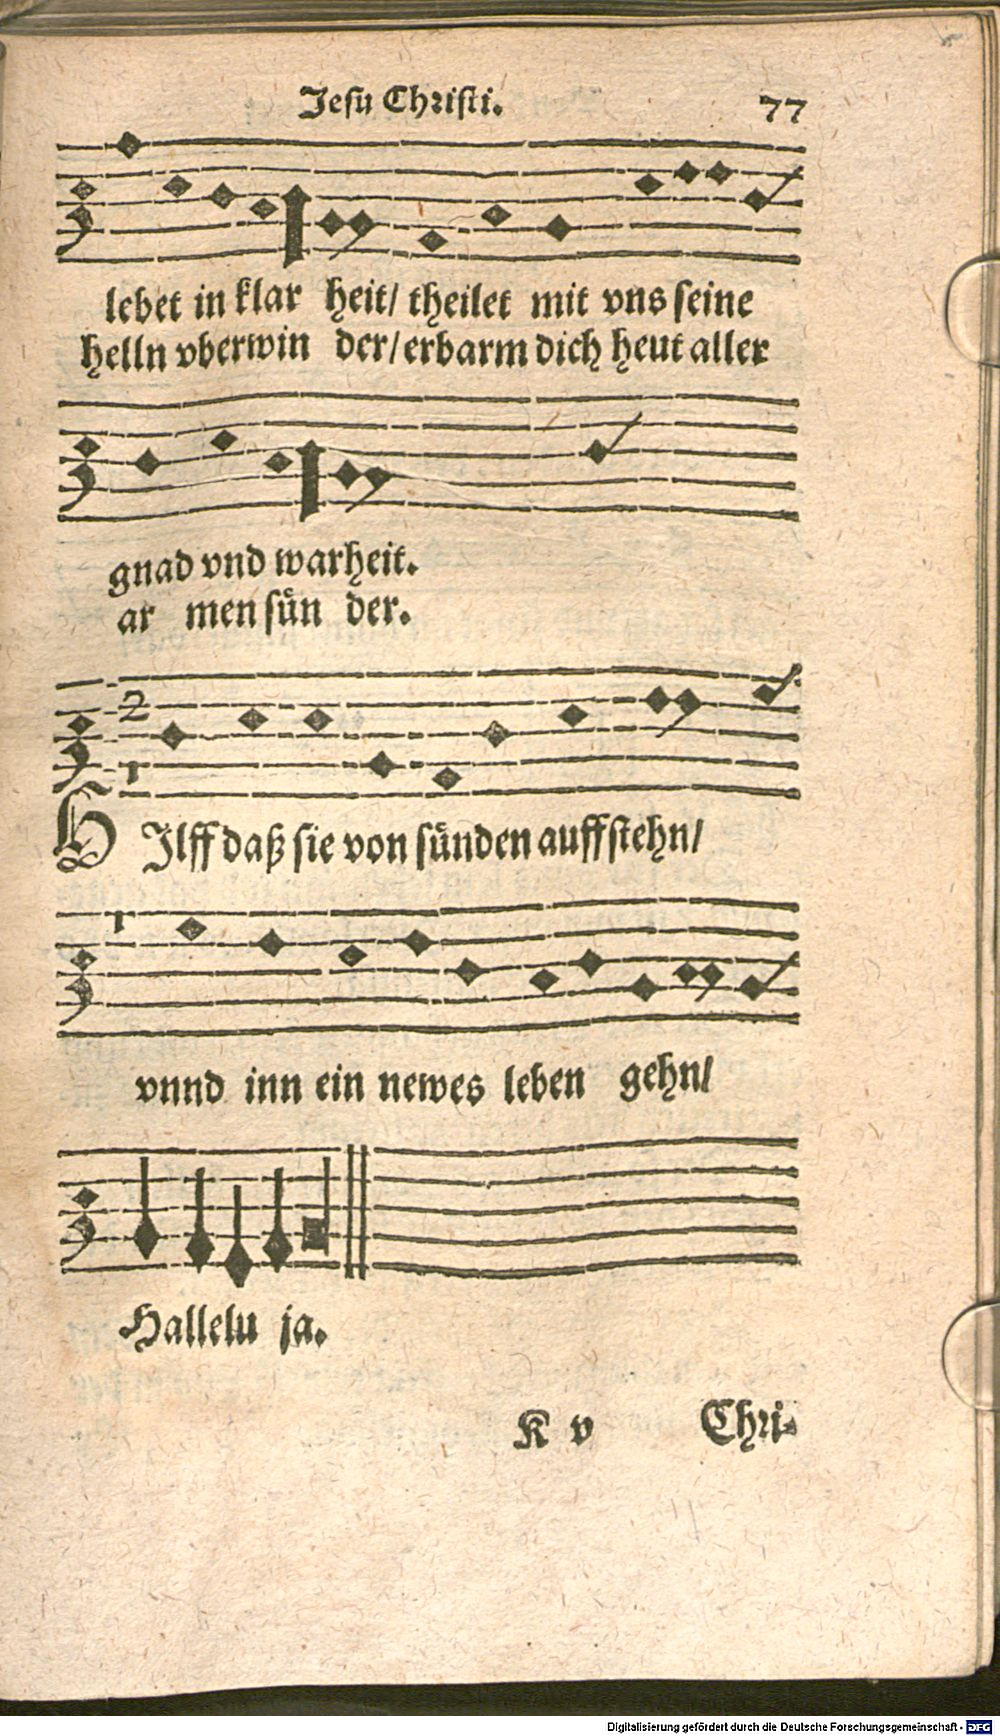 Jesu Christi. 77
lebet in klar heit/ theilet mit vns seine
helln vberwin der/ erbarm dich heut aller
gnad vnd warheit.
ar men suͤn der.
2
1
HIlff daß sie von suͤnden auffstehn/
1
vnnd inn ein newes leben gehn/
Hallelu ja.
K v Chri-
Digitalisierung gefördert durch die Deutsche Forschungsgemeinschaft - DFG